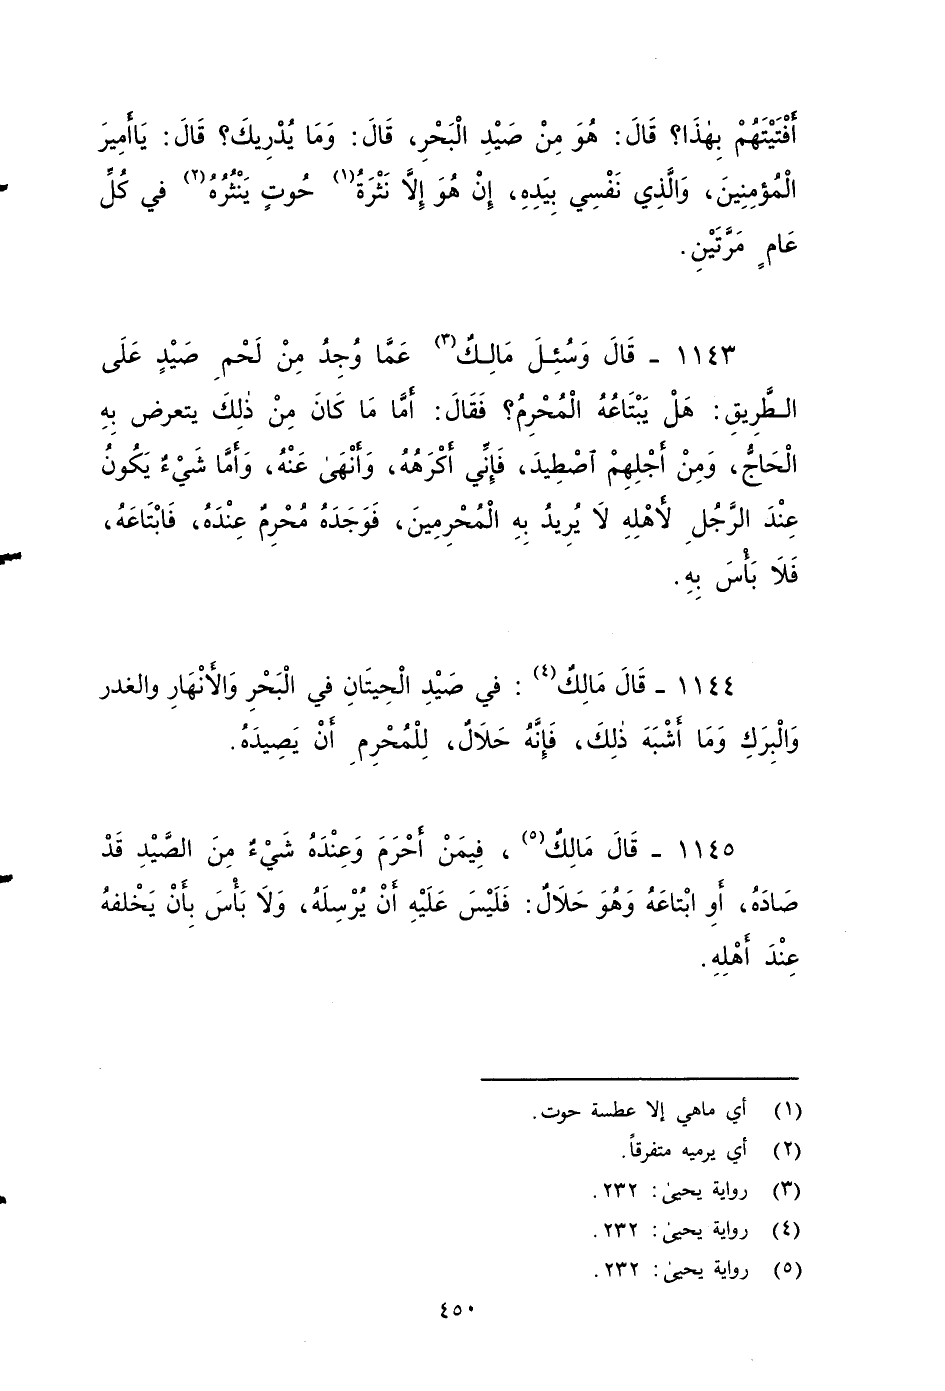 أَفْتَيْتَهُمْ بِهٰذَا؟ قَالَ: هُوَ مِنْ صَيْدِ الْبَحْرِ، قَالَ: وَمَا يُدْرِيكَ؟ قَالَ: يَاأَمِيرَ
الْمُؤْمِنِينَ، وَالَّذِي نَفْسِي بِيَدِهِ، إِنْ هُوَ إِلَّا نَثْرَةُ(١) حُوتٍ يَنْثُرُهُ(٢) في كُلِّ
عَامٍ مَرَّتَيْنِ.
١١٤٣ ـ قَالَ وَسُئِلَ مَالِكٌ(٣) عَمَّا وُجِدُ مِنْ لَحْمِ صَيْدٍ عَلَى
الطَّرِيقِ: هَلْ يَبْتَاعُهُ الْمُحْرِمُ؟ فَقَالَ: أَمَّا مَا كَانَ مِنْ ذٰلِكَ يتعرض بِهِ
الْحَاجُّ، وَمِنْ أَجْلِهِمْ ٱصْطِيدَ، فَإِنِّي أَكْرَهُهُ، وَأَنْهَىٰ عَنْهُ، وَأَمَّا شَيْءٌ يَكُونُ
عِنْدَ الرَّجُلِ لأَهْلِهِ لَا يُرِيدُ بِهِ الْمُحْرِمِينَ، فَوَجَدَهُ مُحْرِمٌ عِنْدَهُ، فَابْتَاعَهُ،
فَلَا بَأْسَ بِهِ.
١١٤٤ ـ قَالَ مَالِكٌ(٤) : في صَيْدِ الْحِيتَانِ في الْبَحْرِ وَالأَنْهَارِ والغدر
وَالْبِرَكِ وَمَا أَشْبَهَ ذٰلِكَ، فَإِنَّهُ حَلَالٌ، لِلْمُحْرِمِ أَنْ يَصِيدَهُ.
١١٤٥ ـ قَالَ مَالِكٌ(٥) ، فِيمَنْ أَحْرَمَ وَعِنْدَهُ شَيْءٌ مِنَ الصَّيْدِ قَدْ
صَادَهُ، أَوِ ابْتاعَهُ وَهُوَ حَلَالٌ: فَلَيْسَ عَلَيْهِ أَنْ يُرْسِلَهُ، وَلَا بَأْسَ بِأَنْ يَخْلفهُ
عِنْدَ أَهْلِهِ.
(١) أي ماهي إلا عطسة حوت.
(٢) أي يرميه متفرقاً.
(٣) رواية يحيىٰ: ٢٣٢.
(٤) رواية يحيىٰ: ٢٣٢.
(٥) رواية يحيىٰ: ٢٣٢.
٤٥٠